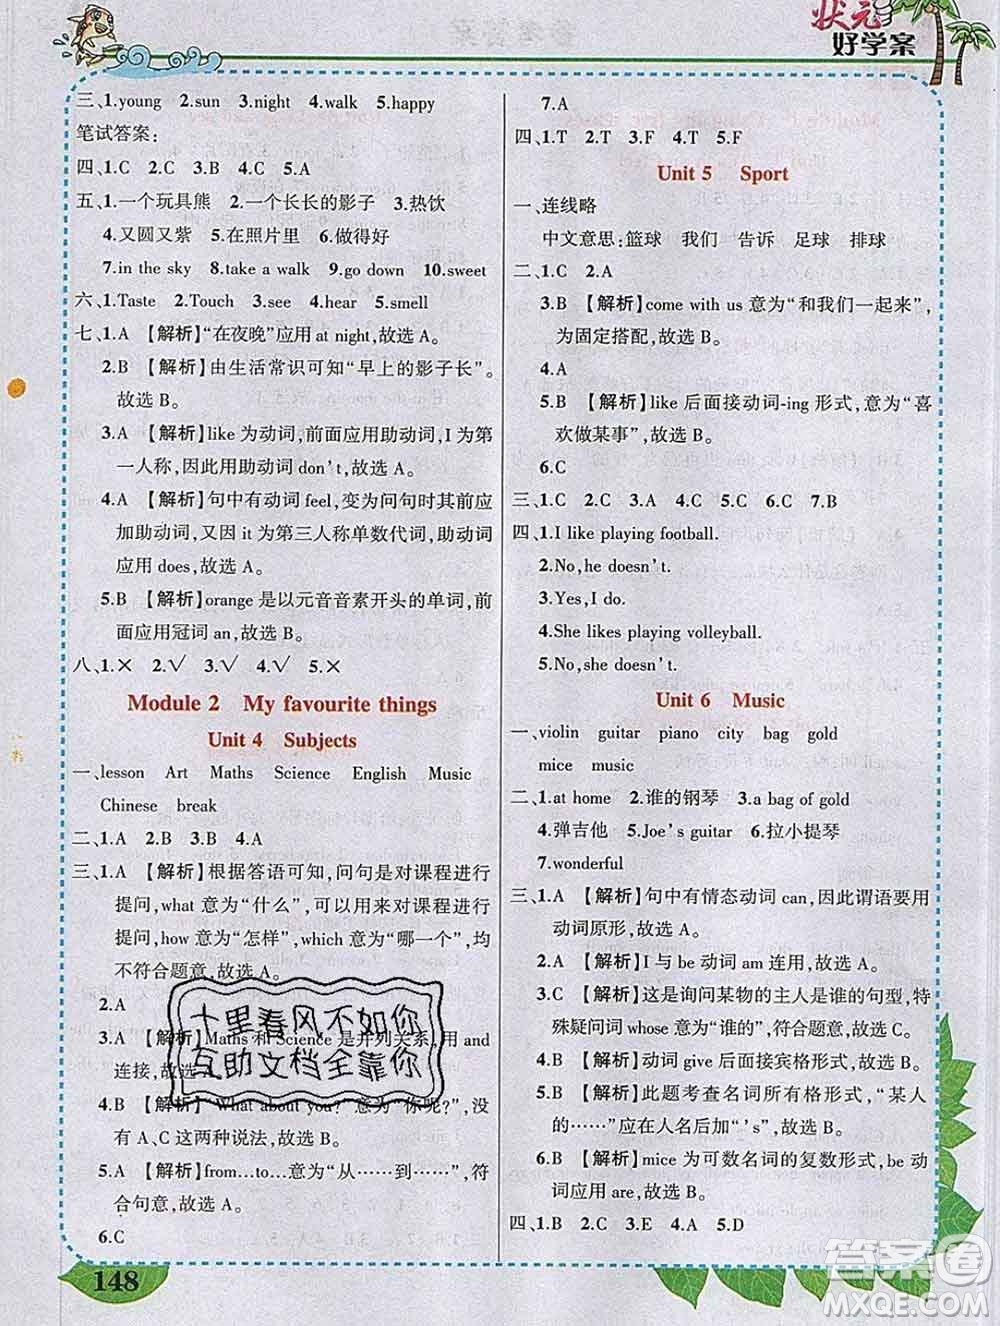 状元
好学案
三、1.young 2.sun 3.night 4.walk 5.happy
笔试答案:
四、1.C 2.B 3.B 4.C 5.A
五、1.一个玩具熊 2.一个长长的影子 3.热饮
4.又圆又紫 5.在照片里 6.做得好
7.in the sky 8.take a walk 9.go down 10.sweet
六、1.Taste 2.Touch 3.see 4.hear 5.smell
七、1.A 【解析】“在夜晚”应用 at night,故选 A。
2.B 【解析】由生活常识可知“早上的影子长”。
故选 B。
3.A 【解析】like 为动词,前面应用助动词,I 为第
一人称,因此用助动词 don’t,故选 A。
4.A 【解析】句中有动词 feel,变为问句时其前应
加助动词,又因 it 为第三人称单数代词,助动词
应用 does,故选 A。
5.B 【解析】orange 是以元音音素开头的单词,前
面应用冠词 an,故选 B。
八、1.× 2.√ 3.√ 4.√ 5.×
Module 2 My favourite things
Unit 4 Subjects
一、lesson Art Maths Science English Music
Chinese break
二、1.A 2.B 3.B 4.A
三、1.A 【解析】根据答语可知,问句是对课程进行
提问,what 意为“什么”,可以用来对课程进行
提问,how 意为“怎样”,which 意为“哪一个”,均
不符合题意,故选 A。
2.A
3.A 【解析】Maths 和 Science 是并列关系,用 and
连接,故选 A。
4.B 【解析】What about you? 意为“你呢?”,没
有 A、C 这两种说法,故选 B。
5.A 【解析】from…to…意为“从……到……”,符
合句意,故选 A。
6.C
7.A
四、1.T 2.T 3.F 4.T 5.F
Unit 5 Sport
一、连线略
中文意思:篮球 我们 告诉 足球 排球
二、1.C 2.A
3.B 【解析】come with us 意为“和我们一起来”,
为固定搭配,故选 B。
4.A
5.B 【解析】like 后面接动词-ing 形式,意为“喜
欢做某事”,故选 B。
6.C
三、1.C 2.C 3.A 4.C 5.A 6.C 7.B
四、1.I like playing football.
2.No,he doesn’t.
3.Yes,I do.
4.She likes playing volleyball.
5.No,she doesn’t.
Unit 6 Music
一、violin guitar piano city bag gold
mice music
二、1.at home 2.谁的钢琴 3.a bag of gold
4.弹吉他 5.Joe’s guitar 6.拉小提琴
7.wonderful
三、1.A 【解析】句中有情态动词 can,因此谓语要用
动词原形,故选 A。
2.A 【解析】I 与 be 动词 am 连用,故选 A。
3.C 【解析】这是询问某物的主人是谁的句型,特
殊疑问词 whose 意为“谁的”,符合题意,故选 C。
4.B 【解析】动词 give 后面接宾格形式,故选 B。
5.B 【解析】此题考查名词所有格形式,“某人
的……”应在人名后加“’s”,故选 B。
6.B 【解析】mice 为可数名词的复数形式,be 动
词应用 are,故选 B。
四、1.B 2.C 3.E 4.A 5.D
十里春风不如你
互助文档全靠你
148
答案圈
MXQE.COM